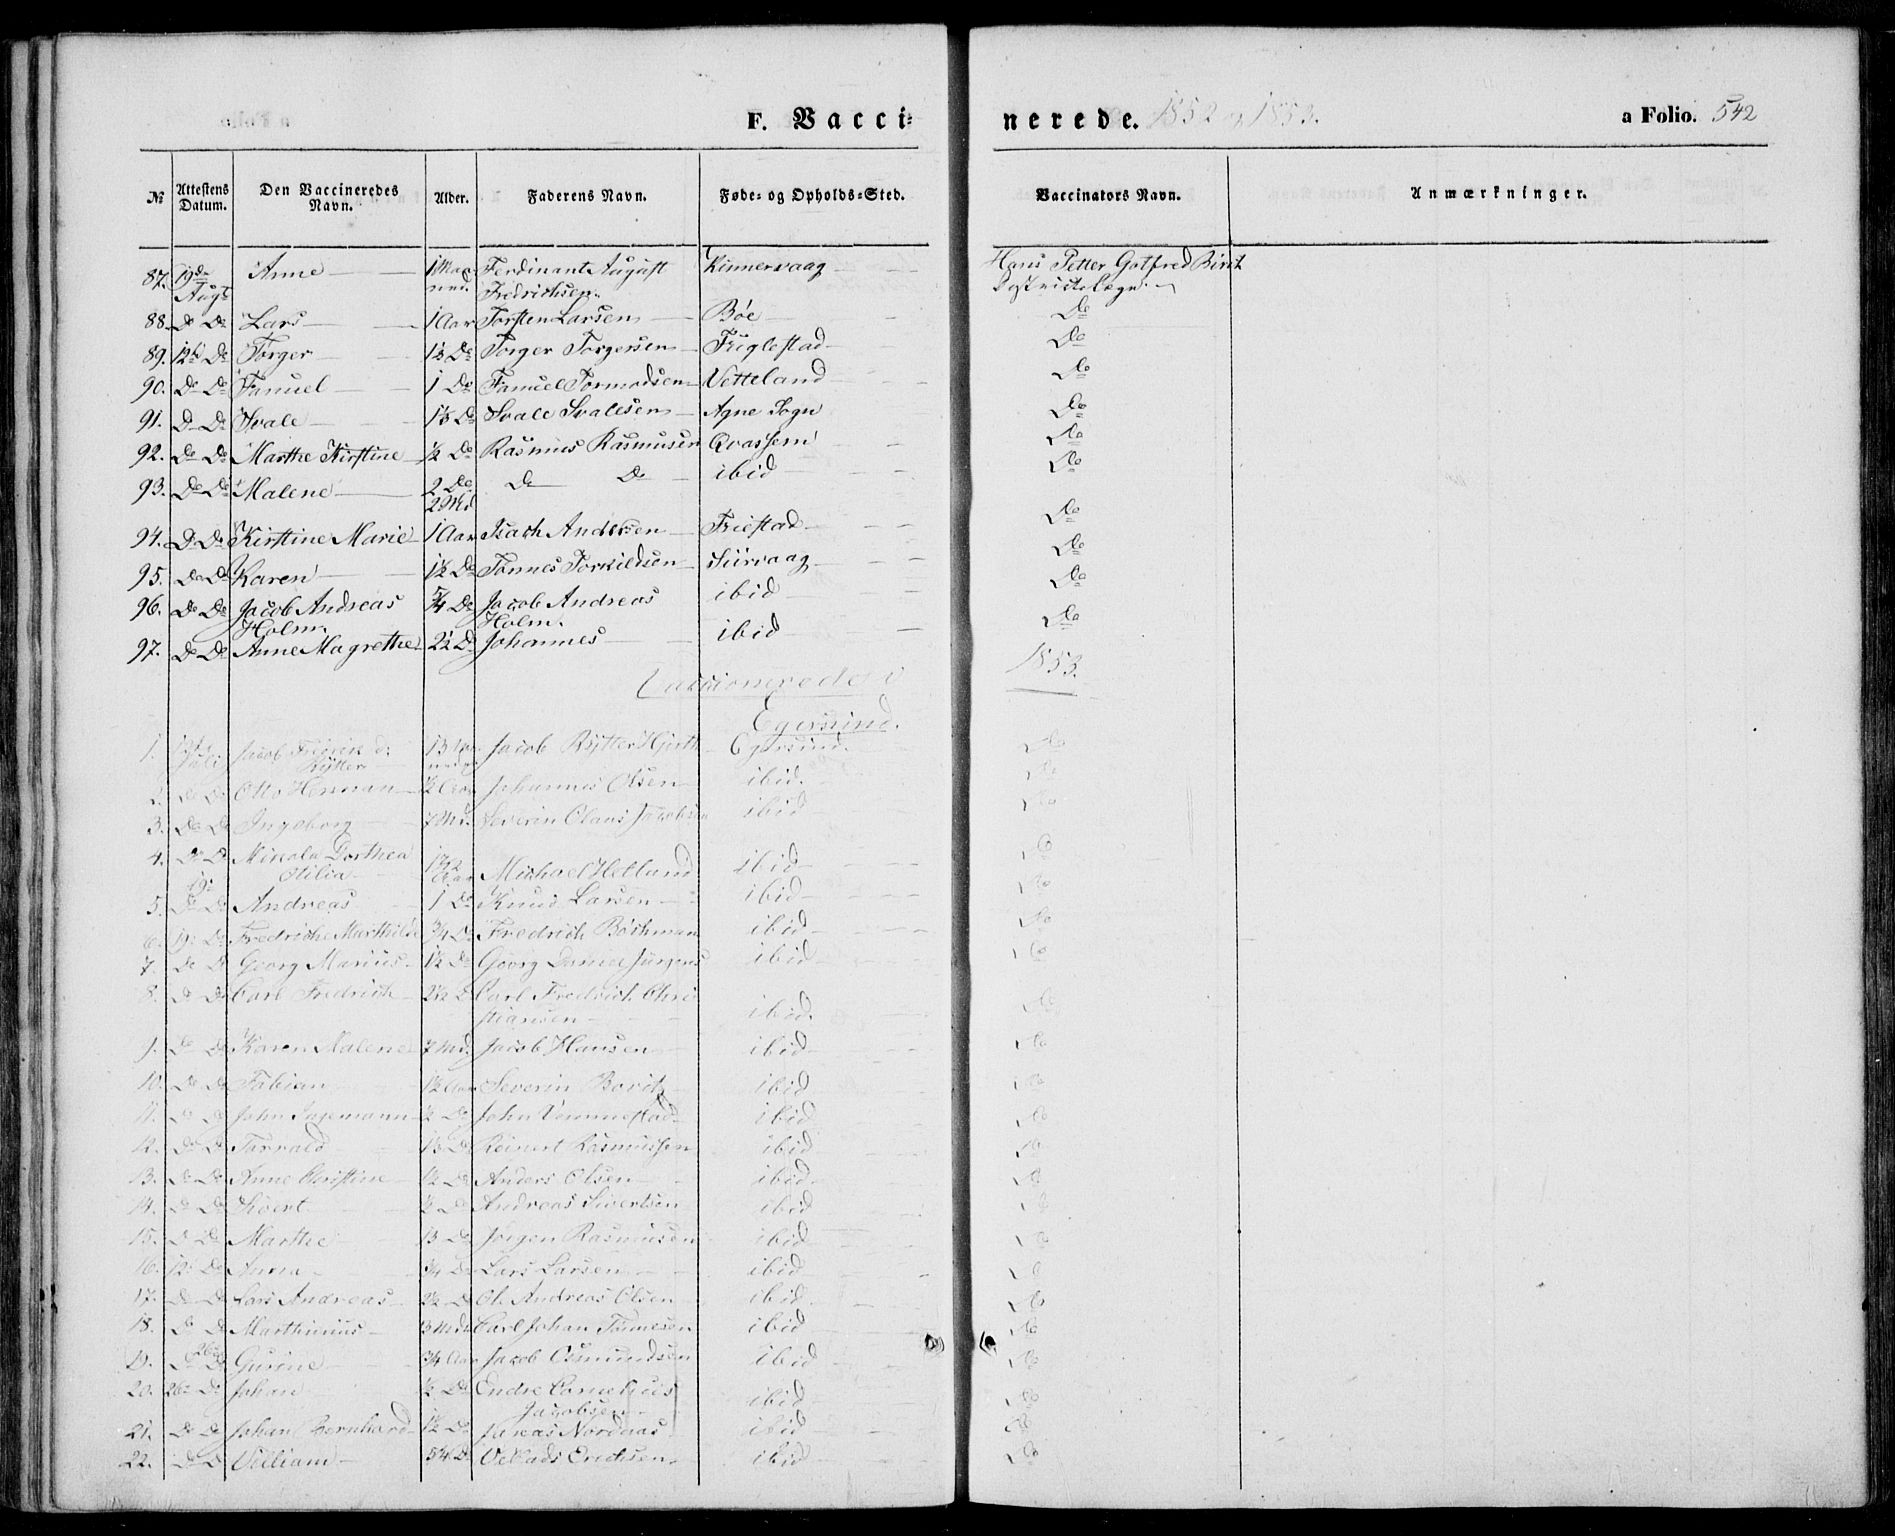 F. Vacci=
nerede. 1852 & 1853.
a Folio. 542
№ Attestens Datum. Den Vaccineredes Navn. Alder. Faderens Navn. Føde= og Opholds=Sted. Vaccinators Navn. Anmærkninger.
87. 19de Augt Anne Ferdinant August Fredrichsen Kinnervaag Hans Petter Gotfred
88. Do Do Lars 1 Aar Torsten Larsen Bøe Do
89. Do Torger 1½ Do Torger Torgersen Do
90. Do Do Samuel 1 Do Samuel Tormodsen Vetteland Do
91. Do Do Svale 1½ Do Svale Svalesen Agne Sogn Do
92. Do Do Marthe Kirstine ½ Do Rasmus Rasmusen Qvassem Do
93. Do Do Malene 2 Do Do Do ibid Do
94. Do Do Kirstine Marie 1 Aar Isach Andersen Friestad Do
95. Do Do Karen 1½ Do Tønnes Torkildsen Siirvaag Do
96. Do Do Jacob Andreas Holm 5/4 Do Jacob Andreas Holm. ibid Do
97. Do Do Anne Magrethe 2½ Do Johannes ibid Do
Vaccineredes i 1853.
Egersund.
1. Juli Jacob Rytter Jacob Rytter Egersund. Do
2. Do Do Otto Herman ½ Aar Johannes Olsen ibid. Do
3. Do Do Ingeborg 7 Md. Severin Claus Jacobsen ibid Do
4. Do Do Dorthea Otilia Aar Michael Hetland ibid Do
5. Do Do Andreas 1 Do Knud Larsen ibid Do
6. 19 Do Fredriche Marthilde ¾ Do Fredrich Bøchman ibid Do
7. Do Do Georg Marius 1½ Do Georg Daniel Jürgens ibid Do
8. Do Do Carl Fredrich 2½ Do Carl Fredrich Christiansen ibid. Do
9. Do Do Karen Malene 7 Md. Jacob Hansen ibid Do
10. Do Do Fabian 1½ Aar Severin ibid Do
11. Do Do John ½ Do John ibid Do
12. Do Do Tarrald Do Reinert Rasmussen ibid Do
13. Do Do Anne Christine 1½ Do Anders Olsen ibid Do
14. Do Do Sivert ½ Do Andreas Sivertsen ibid Do
15. Do Do Marthe Do Jørgen Rasmussen ibid Do
16. Do Anna ¾ Do Lars Larsen ibid Do
17. Do Do Lars Andreas 2½ Do Ol. Andreas Olsen ibid Do
18. Do Do Marthinus Carl Johan Tønnesen ibid Do
19. Do Gurine ¾ Aar Jacob Osmundsen ibid Do
20. 26 Do Johan ½ Do Endre Cornelius Jacobsen ibid Do
21. Do Do Johan Bernhard 1½ Do Jonas ibid Do
22. Do Do Viliam 5/4 Do Erichsen ibid Do